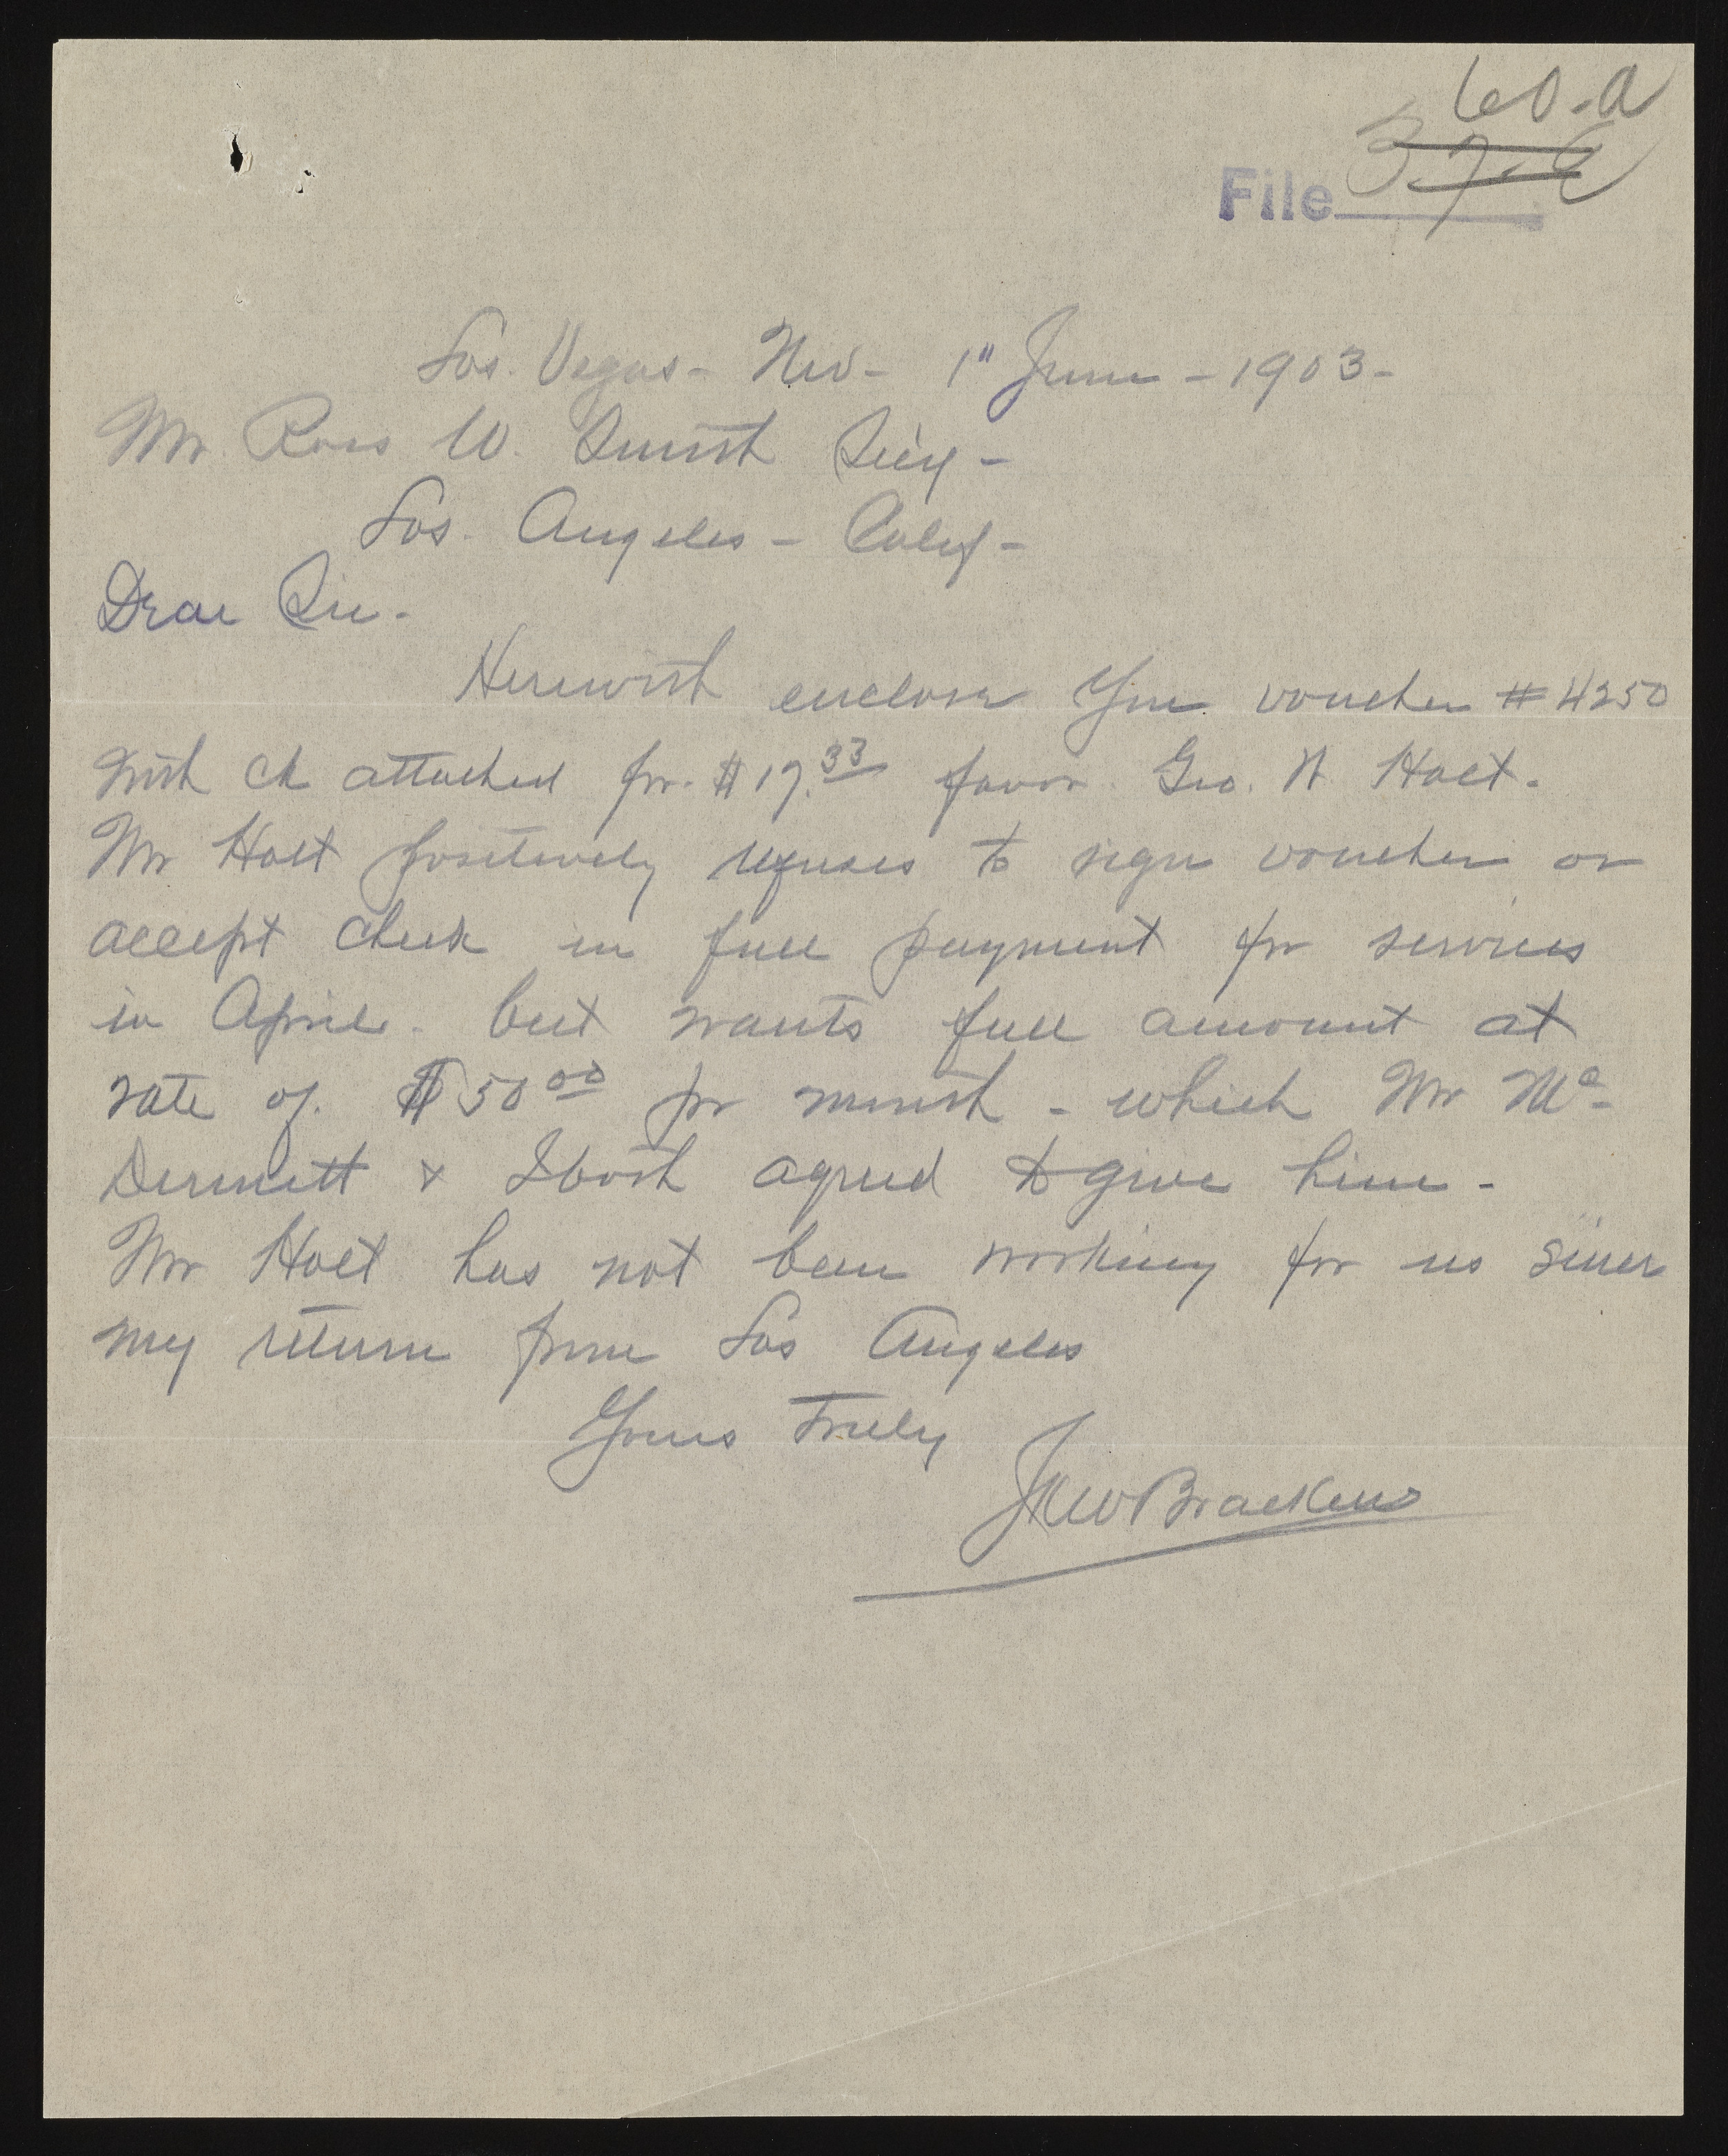 60.a
File 37-C
Las. Vegas - Nev - 1" June - 1903 -
Mr. Ross W. Smith Secy -
Los. Angeles - Calif -
Dear Sir.
Herewith enclose you voucher # 4250
with ck attached for. $17.33 favor. Geo. N Holt.
Mr Holt positively refuses to sign voucher or
accept check in full payment for services
in April. but wants full amount at
rate of. $50 00 pr month - which Mr Mc-
Dermitt & I both agreed to give him -
Mr Holt has not been working for us since
my return from Los Angeles
Yours Truly
JKW Bracken